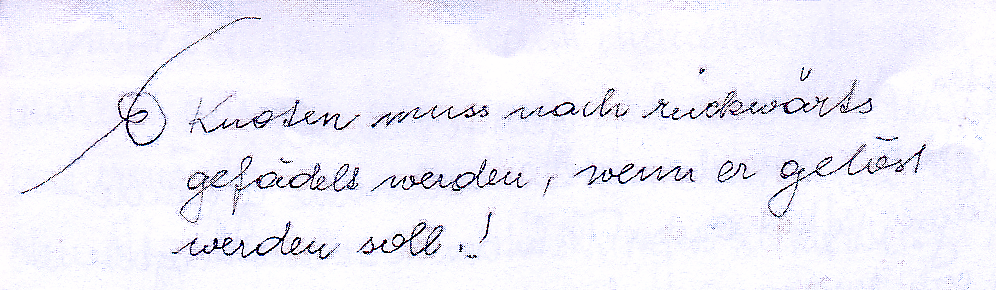 Knoten muss nach rückwärts
gefädelt werden, wenn er gelöst
werden soll!